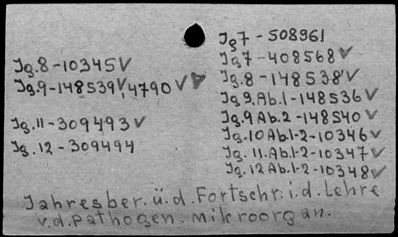 Jg.8-10345√
Jg.9-148539√,4790√ √
Jg.11-309493√
Jg.12-309494
Jg7-508961
Jg7-408568√
Jg.8-148538√
Jg9.Ab.1-148536√
Jg.9Ab.2-148540√
Jg.10Ab.1-2-10346√
Jg.11.Ab.1-2-10347√
Jg.12Ab.1-2-10348√
Jahresber.ü.d.Fortschr.i.d.Lehre
v.d.pathogen.mikroorgan.